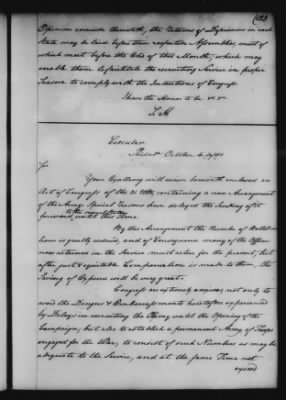 123
Opinion coincide therewith, the Returns of Deficiencies in each
State may be laid before their respective Assemblies, most of
which meet before the End of this Month, which may
enable them to facilitate the recruiting Service in proper
Season to comply with the Intentions of Congress
I have the Honor to be &c &c
S. H.
Circular
Philada October 4 1780
Sir
Your Excellency will receive herewith enclosed an
Act of Congress of the containing a new Arrangement
of the Army Special Reasons have delayed the sending of it
to the several States
forward until this Time
By this Arrangement the Number of Battal
lions is greatly reduced, and of Consequence many of the Officers
now retained in the Service must retire for the present, but
after just & equitable Compensation is made to them, the
Saving of Expence will be very great.
Congress are extremely anxious, not only to
avoid the Dangers & Embarrassments heretofore experienced
by Delays in recruiting the Army until the Opening of the
Campaign; but also to establish a permanent Army of Troops
engaged for the War, to consist of such Numbers as may be
adequate to the Service, and at the same Time not
exceed